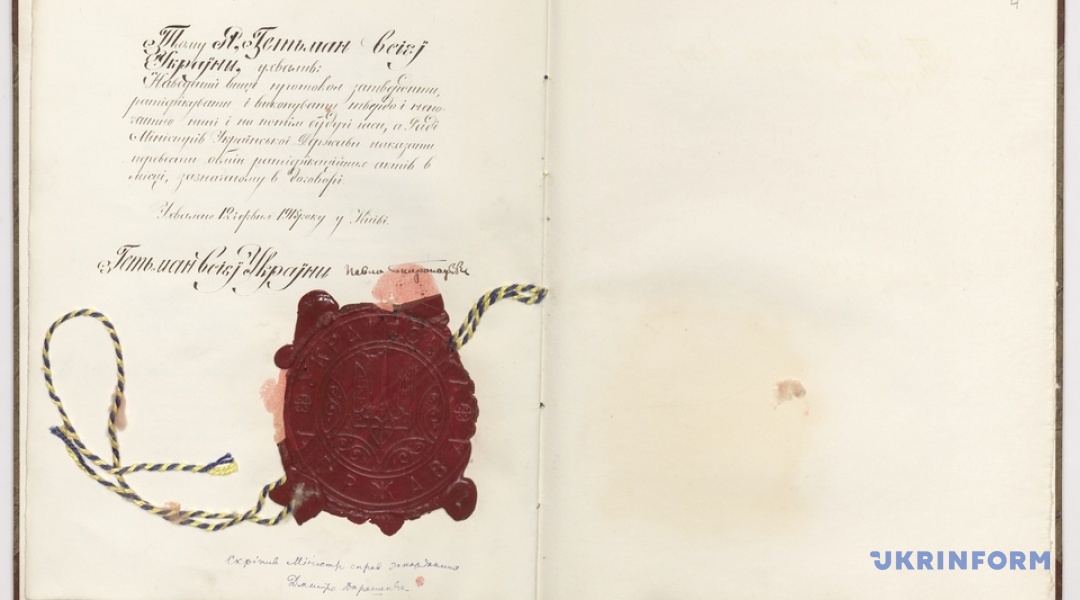 Тому Я, Гетьман всієї
України, ухвалив:
Наведений вище протокол затвердити,
ратифікувати і виконувати твердо і непо-
хитно нині і на потім будучі часи, а Раді
Міністрів Української Держави наказати
перевести обмін ратифікаційних актів в
місці, зазначеному в договорі.
Ухвалено 12 червня 1918 року у Київі.
Гетьман всієї України Павло Скоропадський
УКРАЇНСЬКА ДЕРЖАВА
Скріпив Міністр справ
Дмитро Дорошенко
4
UKRINFORM